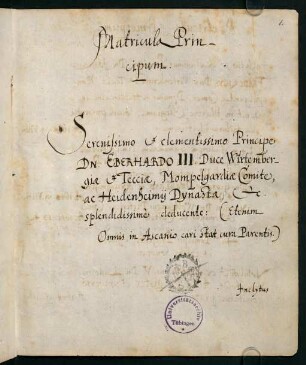 Matricula Prin-
cipum.
Serenissimo & clementissimo Principe
Dn EBERHARDO III. Duce Wirtember-
giæ & Tecciæ, Mompelgardiæ Comite,
ac Heidenheimij Dynasta, &c
splendidissimè deducente: (Etenim
Omnis in Ascanio cari stat cura Parentis.)
Inclytus
Universitätsarchiv
Tübingen